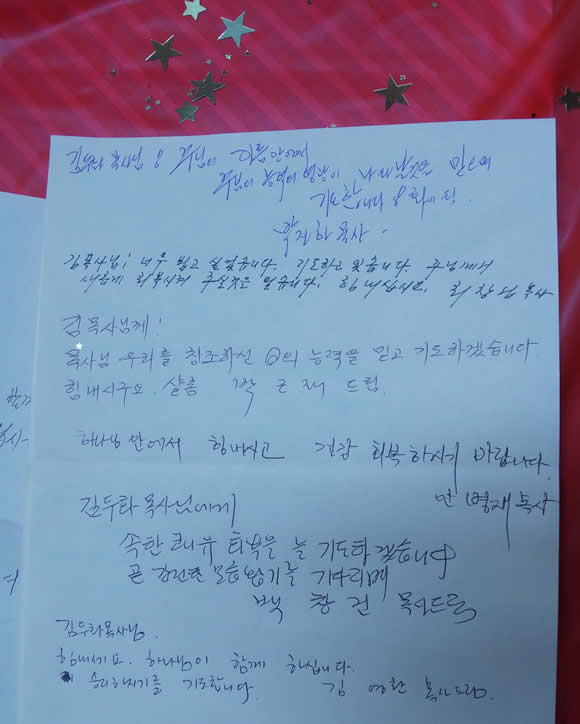 김두타 목사님 주님의 다름 안에서
주님의 능력의 영광이 나타날것을 믿으며
기도합니다 화이팅.
목사.
김목사님! 너무 뵙고 싶었습니다. 기도하고 있습니다. 주님께서
새롭게 회복시켜 주실것을 믿습니다! 힘내십시오, 목사
김목사님께!
목사님 우리를 창조하신 의 능력을 믿고 기도하겠습니다.
힘내시구요. 샬롬 박 근 재 드림.
하나님 안에서 힘내시고 건강 회복하시기 바랍니다.
병재 목사
김두타 목사님에게
속한 치유 회복을 늘 기도하겠습니다
곧 강건한 모습 뵙기를 기다리며
백 창 건 목사드림
김두타목사님.
힘내세요. 하나님이 함께 하십니다.
승리하시기를 기도합니다. 김 영환 목사드림.